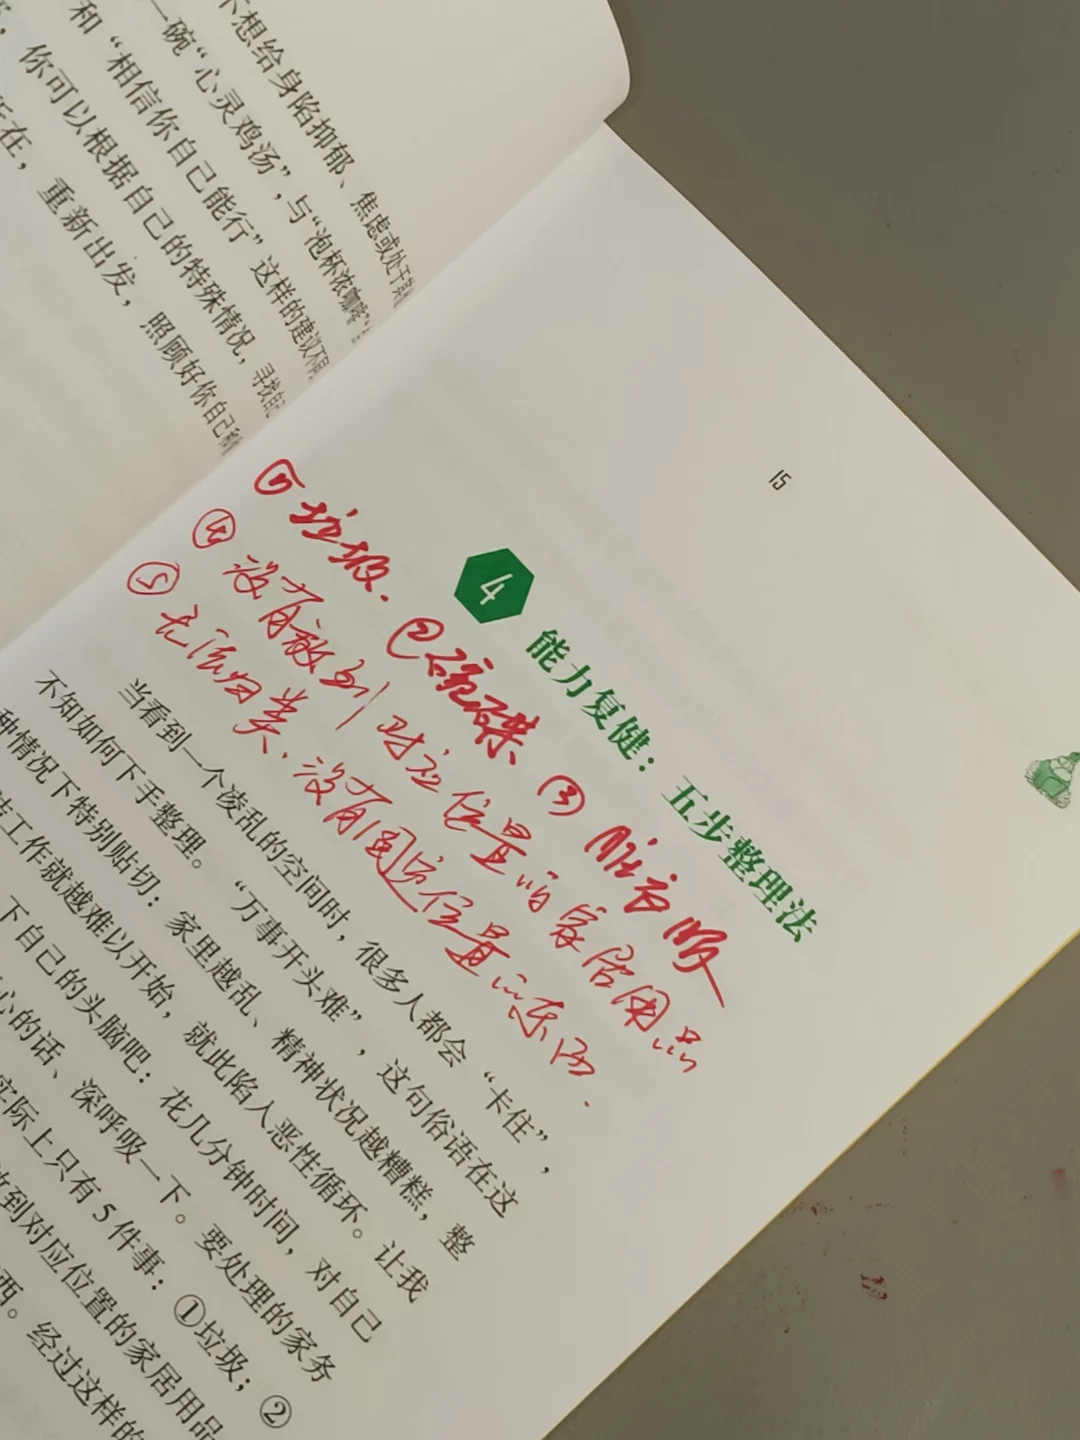 不想给身陷抑郁、焦虑或处于
一碗“心灵鸡汤”，与“泡杯浓咖啡”
和“相信你自己能行”这样的建议不同，
你可以根据自己的特殊情况，寻找自己
所在，重新出发，照顾好你自己
15
4
能力复健：五步整理法
①垃圾. ②碗碟 ③脏衣服
④没有放到对应位置的家居用品
⑤无法归类.没有固定位置的东西.
当看到一个凌乱的空间时，很多人都会“卡住”，
不知如何下手整理。“万事开头难”，这句俗语在这
种情况下特别贴切：家里越乱、精神状况越糟糕，整
洁工作就越难以开始，就此陷入恶性循环。让我
下自己的头脑吧：花几分钟时间，对自己
心的话、深呼吸一下。要处理的家务
实际上只有5件事：①垃圾；②
放到对应位置的家居用品
西。经过这样的